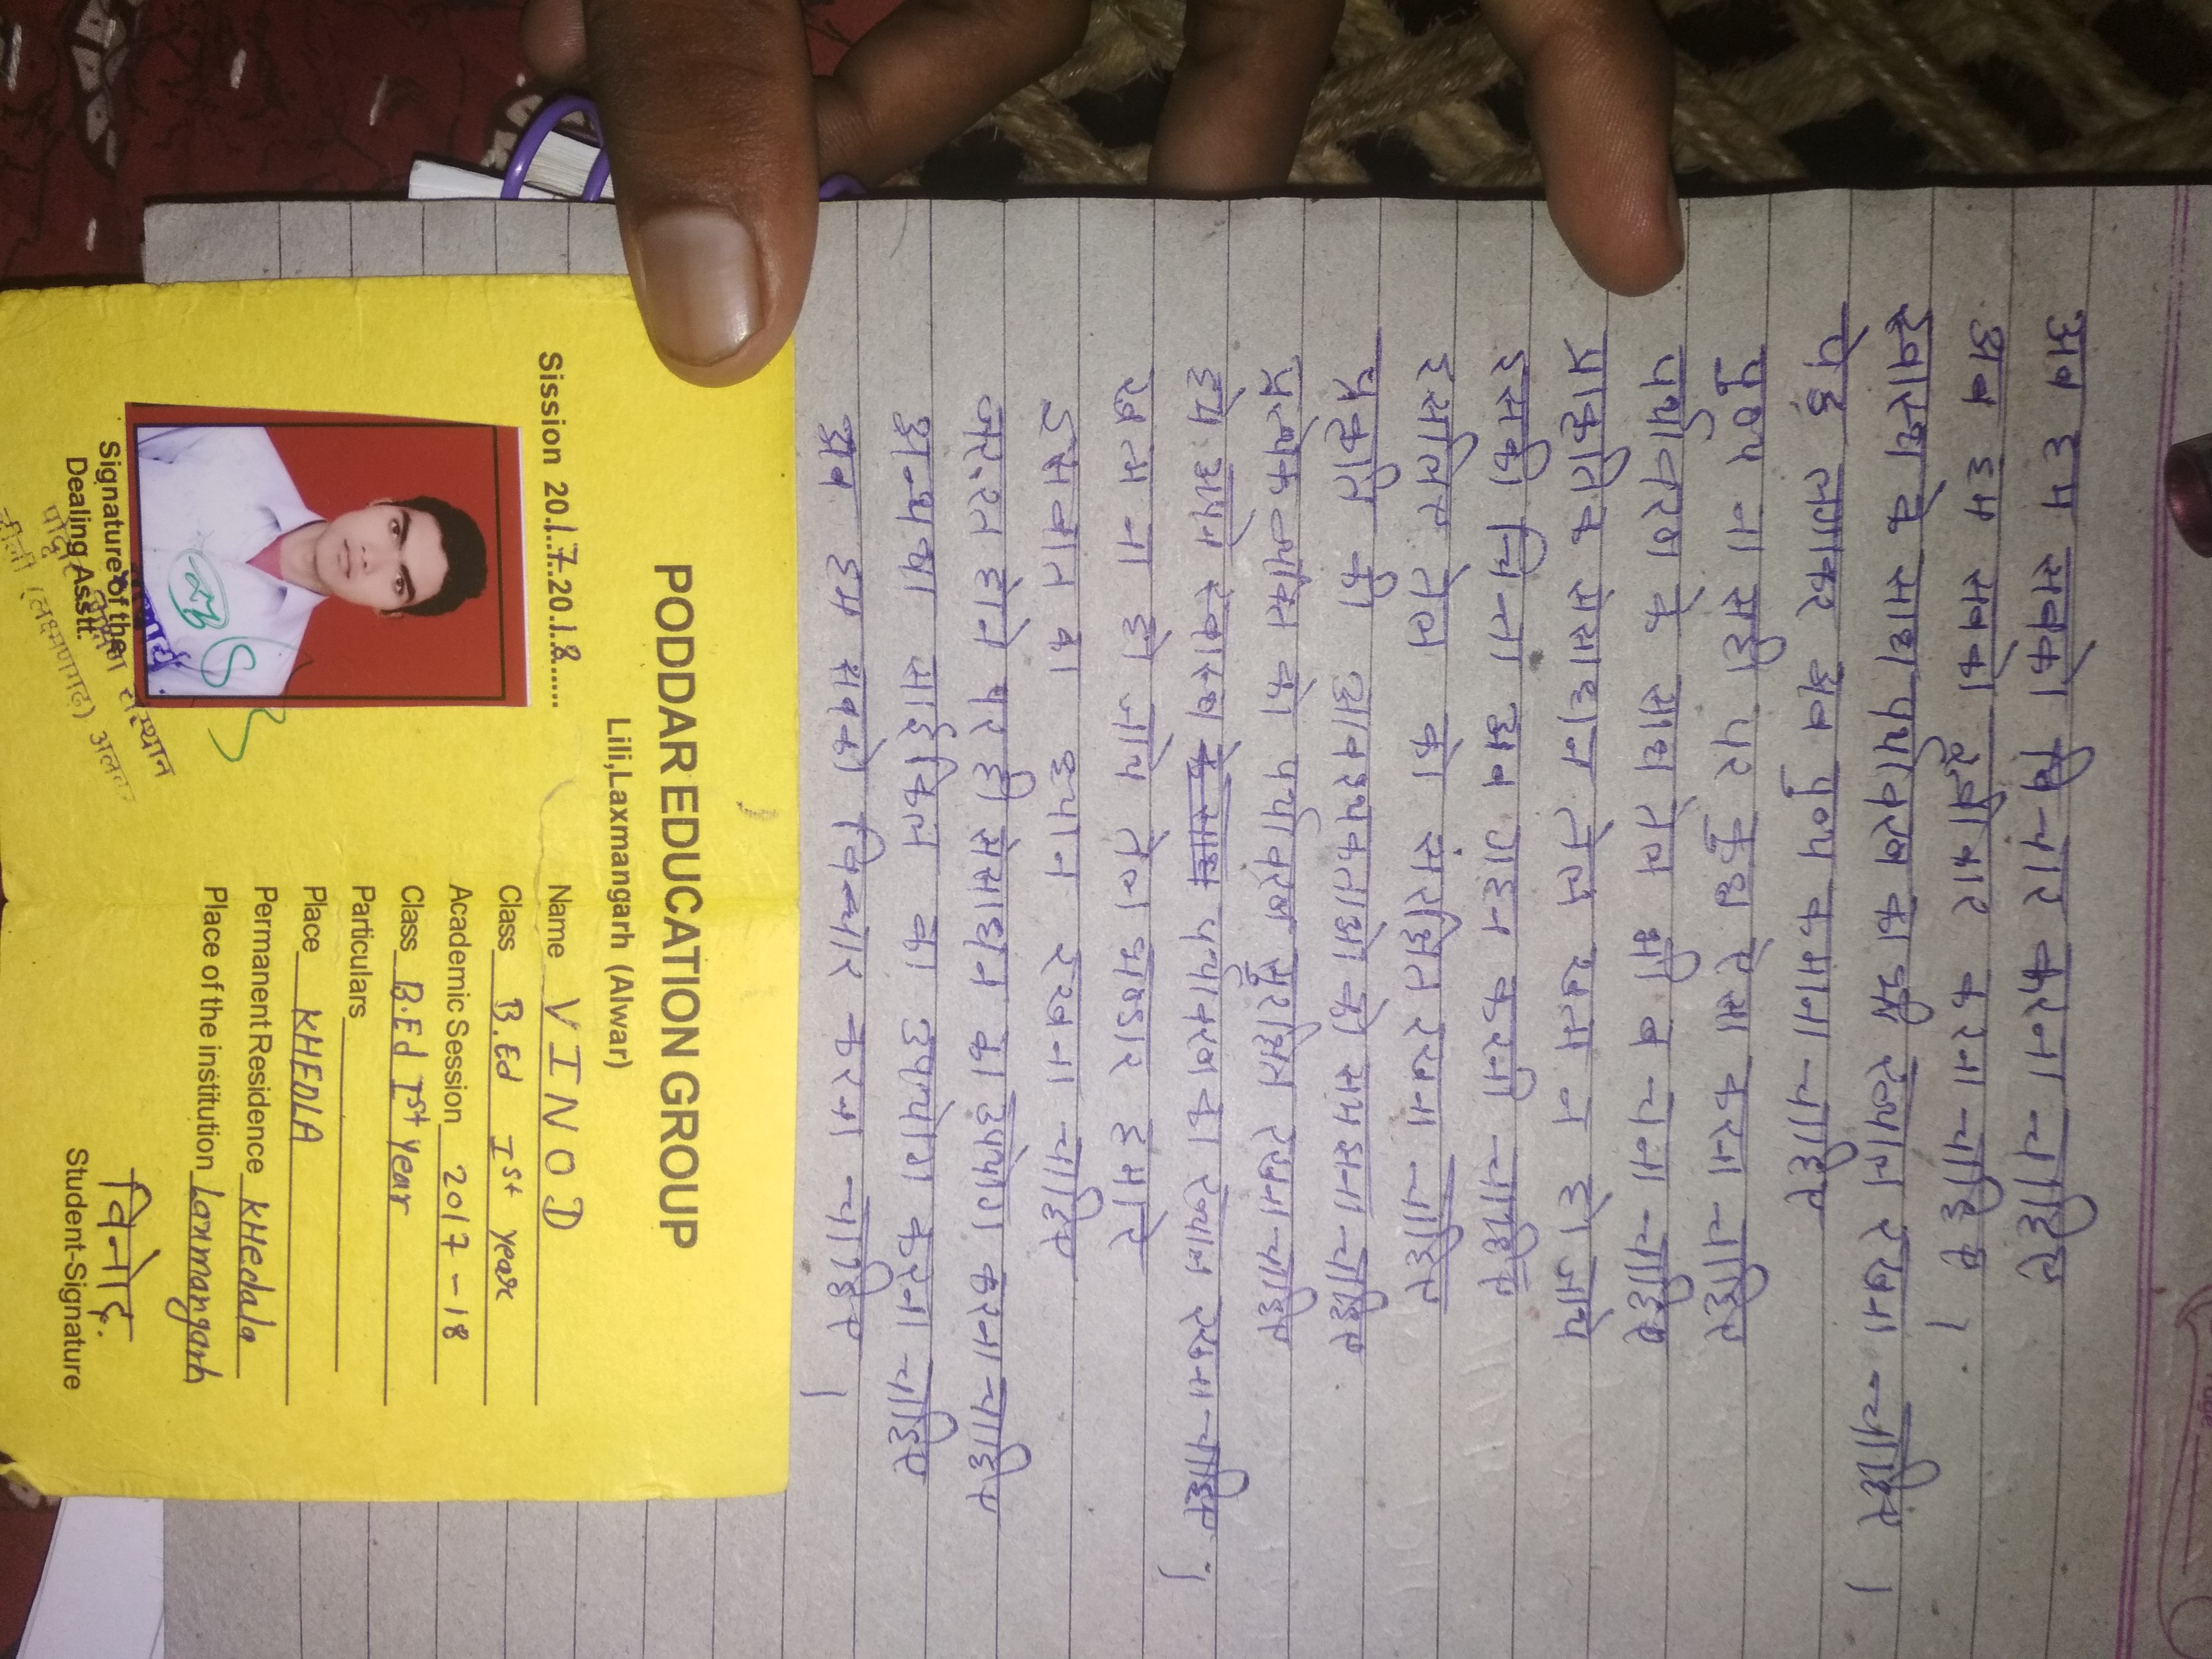 अब हम सबको विचार करना चाहिए
अब हम सबको स्वीकार करना चाहिए।
स्वास्थ्य के साथ पर्यावरण का भी ख्याल रखना चाहिए।
पेड़ लगाकर अब पुण्य कमाना चाहिए
पुण्य ना सही पर कुछ ऐसा करना चाहिए
पर्यावरण के साथ तेल भी बचाना चाहिए
प्राकृतिक संसाधन तेल खत्म न हो जाये
इसकी चिन्ता अब गहन करनी चाहिए
इसलिए तेल को संरक्षित रखना चाहिए
प्रकृति की आवश्यकताओ को समझना चाहिए
प्रत्येक व्यक्ति को पर्यावरण सुरक्षित रखना चाहिए
हमे अपने स्वास्थ के साथ पर्यावरण का ख्याल रखना चाहिए"।
खत्म ना हो जाये तेल भण्डार हमारे
इस बात का ध्यान रखना चाहिए
जरूरत होने पर ही संसाधन का उपयोग करना चाहिए
अन्यथा साईकिल का उपयोग करना चाहिए
अब हम सबको विचार करना चाहिए।
PODDAR EDUCATION GROUP
Lili,Laxmangarh (Alwar)
Sission 20.1.7.20.1.8.....
Name VINOD
Class B.Ed Ist year
Academic Session 2017-18
Class B.Ed Ist year
Particulars
Place KHEDLA
Permanent Residence KHedala
Place of the institution Laxmangarh
Signature of the
Dealing Asstt.
संस्थान
(लक्ष्मणगढ़) अलवर
विनोद
Student-Signature